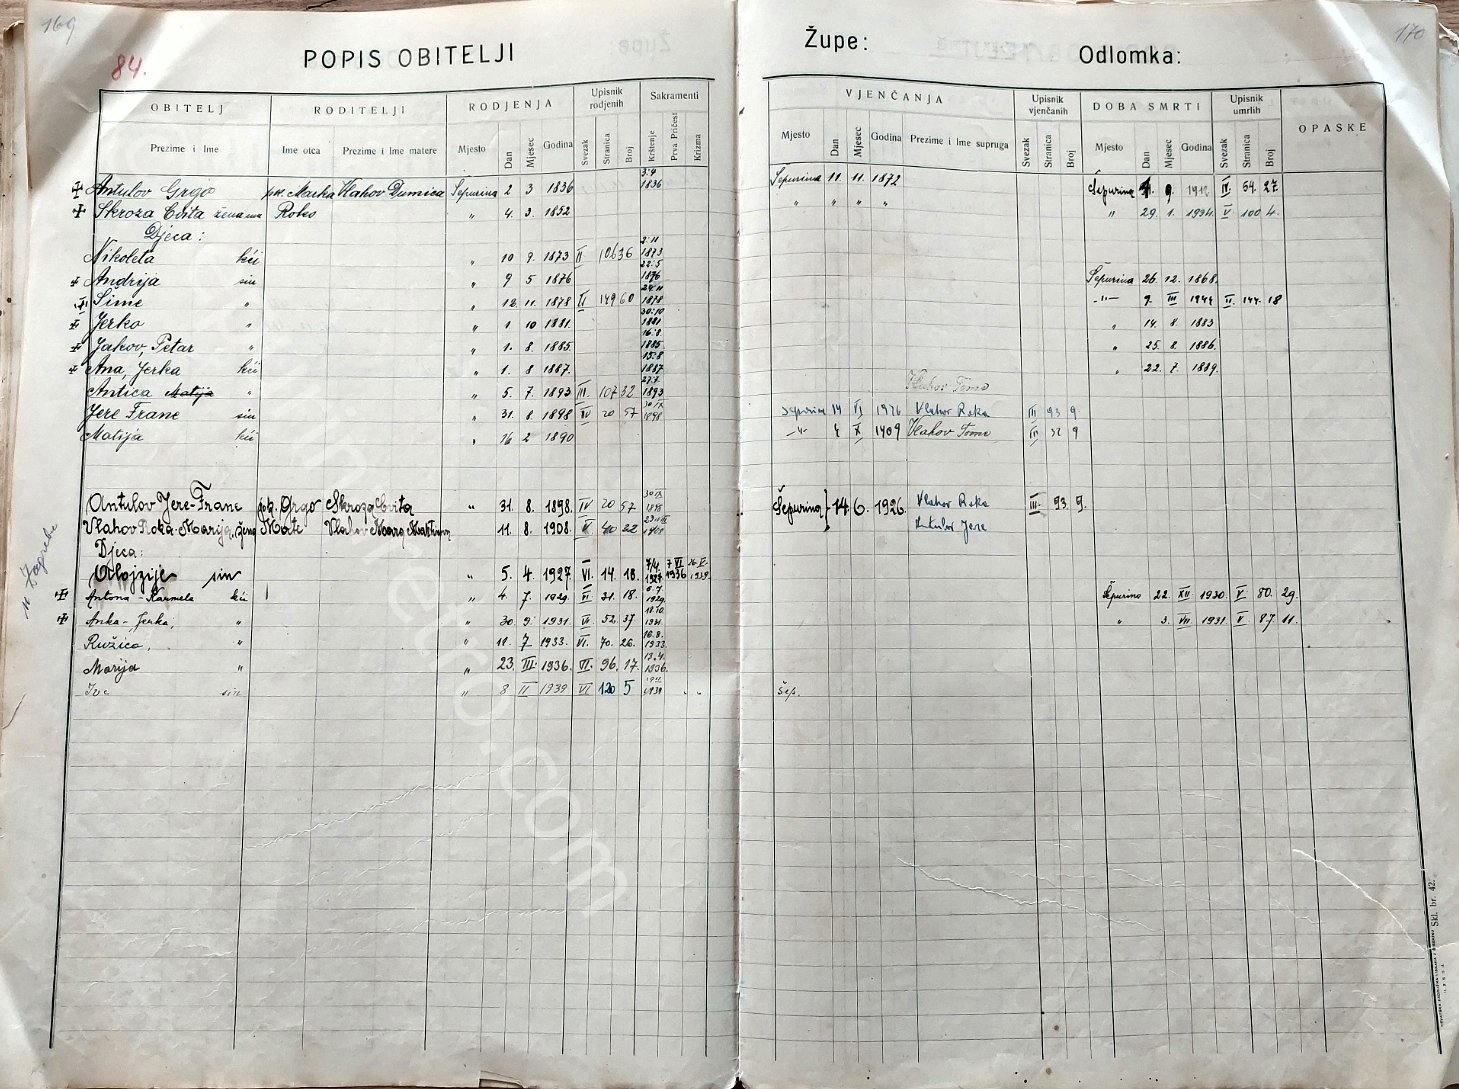 169
84.
POPIS OBITELJI
OBITELJ RODITELJI RODJENJA Upisnik rodjenih Sakramenti
Prezime i Ime Ime otca Prezime i Ime matere Mjesto Dan Mjesec Godina Svezak Stranica Broj Krštenje Prva Pričest Krizma
Antulov Grgo pok. Marka Vlahov Dumica Šepurina 2 3 1836 3.4 1836
Skroza Cvita žena mu Roko " 4. 3. 1852
Djeca:
Nikoleta kći " 10 9. 1873 II 106 36 2.11 1873
Andrija sin " 9 5 1876 22.5 1876
Šime " " 12. 11. 1878 II 149 60 24.11 1878
Jerko " " 1 10 1881. 30.10 1881
Jakov, Petar " " 1. 8 1885. 16.8. 1885
Ana, Jerka kći " 1. 8 1887. 15.8 1887
Antica Matija " " 5. 7. 1893 III. 107 32 27.7. 1893
Jere Frane sin " 31. 8 1898 IV 20 57 30 IX 1898
Matija kći " 16 2 1890
Antulov Jere-Frane pok. Grgo Skroza Cvita " 31. 8. 1898. IV 20 57 30 IX 1898
Vlahov Roka-Marija, žena Mate Vlahov Mara Martinova " 11. 8. 1908. V. 40 22 1908
Djeca:
Alojzije sin " 5. 4. 1927. VI. 14. 18. 7/4. 1927 7 VI 1936 1939
Antona-Karmela kći " 4. 7. 1929. VI. 31. 18. 6.7. 1929.
Anka-Jerka, " " 30. 9. 1931. VI. 52. 37 18.10. 1931.
Ružica, " " 11. 7. 1933. VI. 70. 26. 16.8. 1933.
Marija " " 23. III. 1936. VI. 96. 17. 13.4. 1936.
Ive sin " 8 II 1939 VI 120 5 1939 " "
u Zagrebu
170
Župe: Odlomka:
VJENČANJA Upisnik vjenčanih DOBA SMRTI Upisnik umrlih OPASKE
Mjesto Dan Mjesec Godina Prezime i Ime supruga Svezak Stranica Broj Mjesto Dan Mjesec Godina Svezak Stranica Broj
Šepurina 11. 11. 1872 Šepurina 11. 9. 1912 IV. 54. 27.
" " " " " 29. 1. 1934. V 100 4.
Šepurina 26. 12. 1868.
-"- 9. III 1944 V. 144. 18
" 14. 8. 1883
" 25. 8. 1886.
" 22. 7. 1889.
Vlahov Tome
Šepurina 14 VI 1926 Vlahov Roka III 93 9
-"- 4 X 1909 Vlahov Tome III 32 9
Šepurina } 14. 6. 1926. Vlahov Roka III. 93. 9.
Antulov Jere
Šepurina 22. XII 1930. V 80. 29.
" 3. VII 1931. V 87 11.
Šep.
Skl. br. 42.